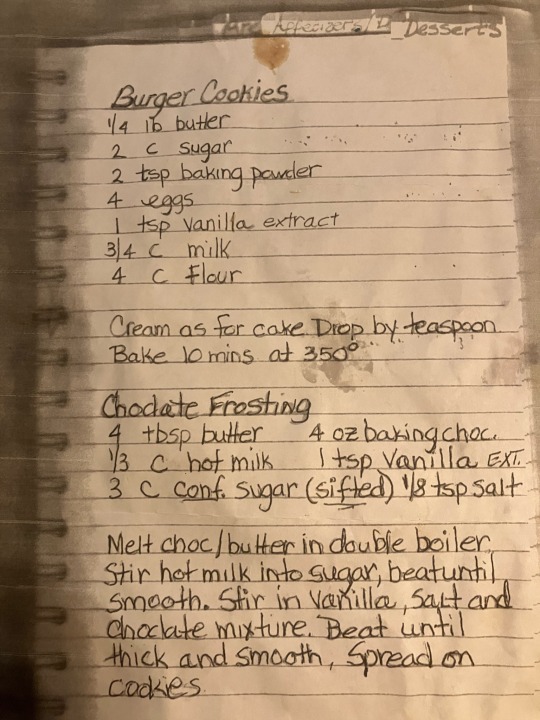 Appetizers/D_Desserts
Burger Cookies
1/4 lb butter
2 c sugar
2 tsp baking powder
4 eggs
1 tsp vanilla extract
3/4 c milk
4 c flour
Cream as for cake Drop by teaspoon
Bake 10 mins at 350°
Choclate Frosting
4 tbsp butter 4 oz baking choc.
1/3 C hot milk 1 tsp Vanilla EXT.
3 C conf. sugar (sifted) 1/8 tsp salt
Melt choc/butter in double boiler.
Stir hot milk into sugar, beat until
smooth. Stir in vanilla, salt and
choclate mixture. Beat until
thick and smooth, Spread on
cookies.